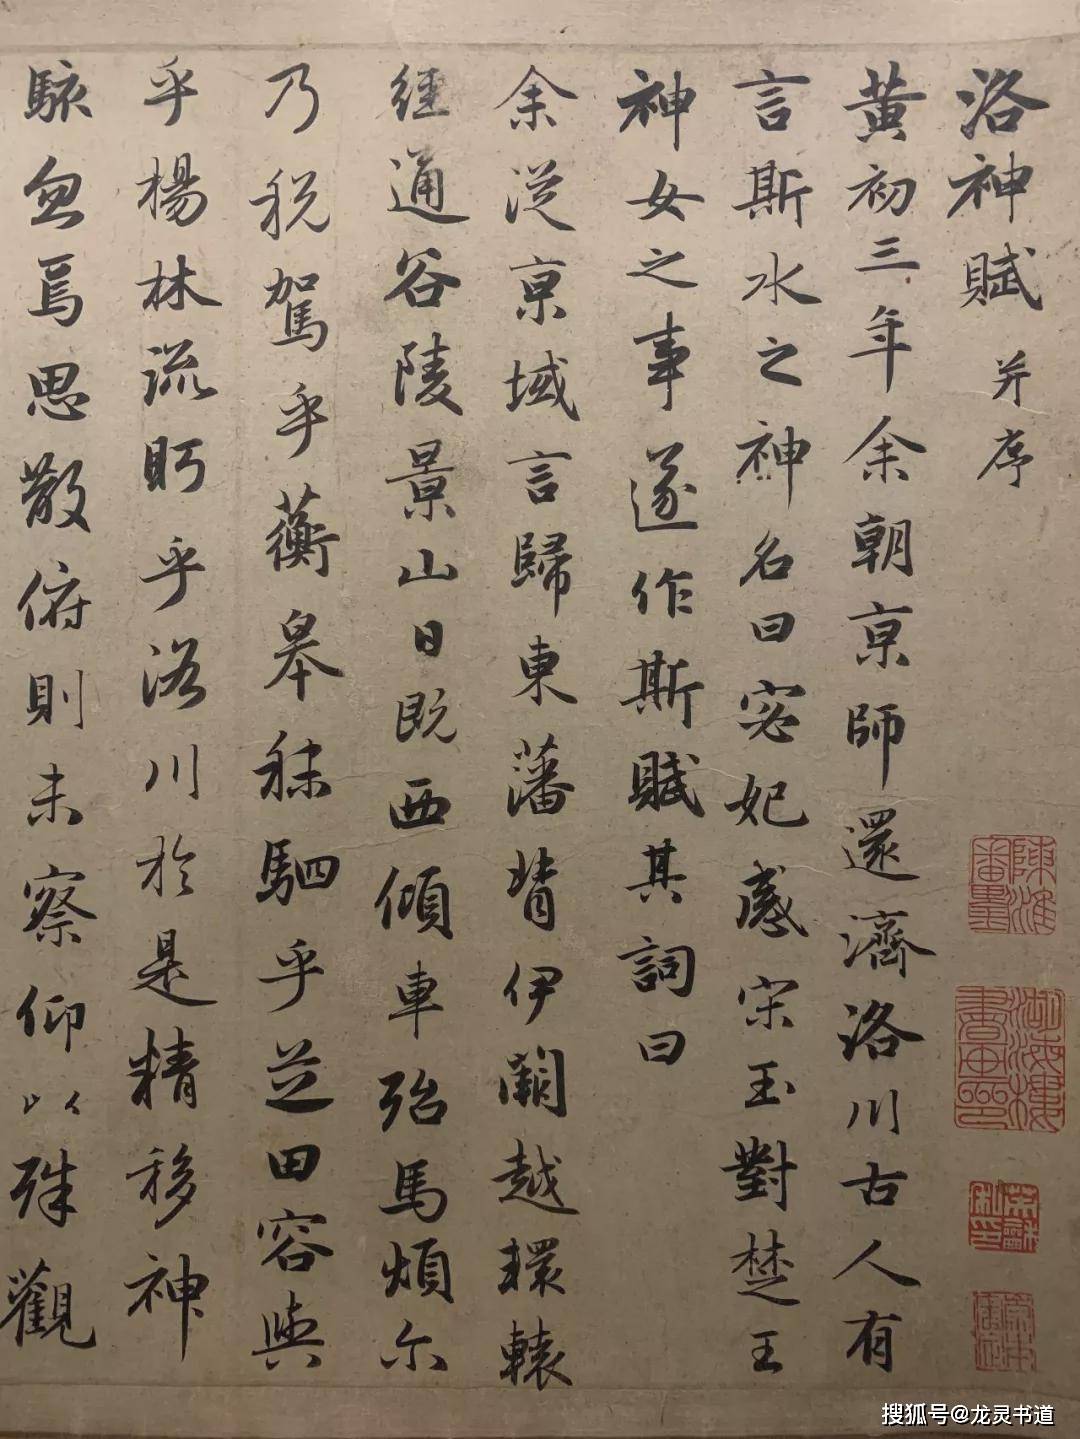 洛神賦 并序
黃初三年余朝京師還濟洛川古人有
言斯水之神名曰宓妃感宋玉對楚王
神女之事遂作斯賦其詞曰
余從京域言歸東藩背伊闕越轘轅
經通谷陵景山日既西傾車殆馬煩尒
乃税駕乎蘅皋秣駟乎芝田容與
乎楊林流眄乎洛川於是精移神
駭忽焉思散俯則未察仰以殊觀
陳淮審墨
湖海樓書畫印
搜狐号@龙灵书道